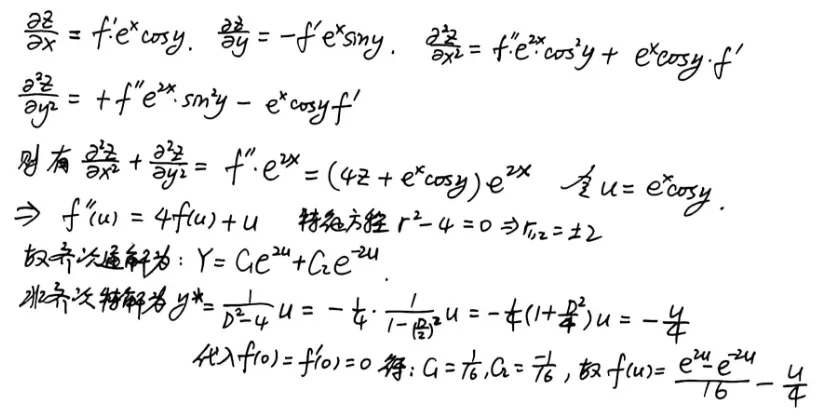 ∂z/∂x = f'·e^x cosy. ∂z/∂y = -f' e^x siny. ∂²z/∂x² = f''·e^{2x}·cos²y + e^x cosy·f'
∂²z/∂y² = +f'' e^{2x}·sin²y - e^x cosy f'
则有 ∂²z/∂x² + ∂²z/∂y² = f''·e^{2x} = (4z + e^x cosy) e^{2x} 令 u = e^x cosy.
⇒ f''(u) = 4f(u) + u 特征方程 r² - 4 = 0 ⇒ r₁,₂ = ±2
故齐次通解为: Y = C₁e^{2u} + C₂e^{-2u}.
非齐次特解为 y* = 1/(D²-4) u = -1/4 · 1/(1-(D/2)²) u = -1/4 (1 + D²/4) u = -u/4
代入 f(0) = f'(0) = 0 得: C₁ = 1/16, C₂ = -1/16, 故 f(u) = (e^{2u} - e^{-2u})/16 - u/4